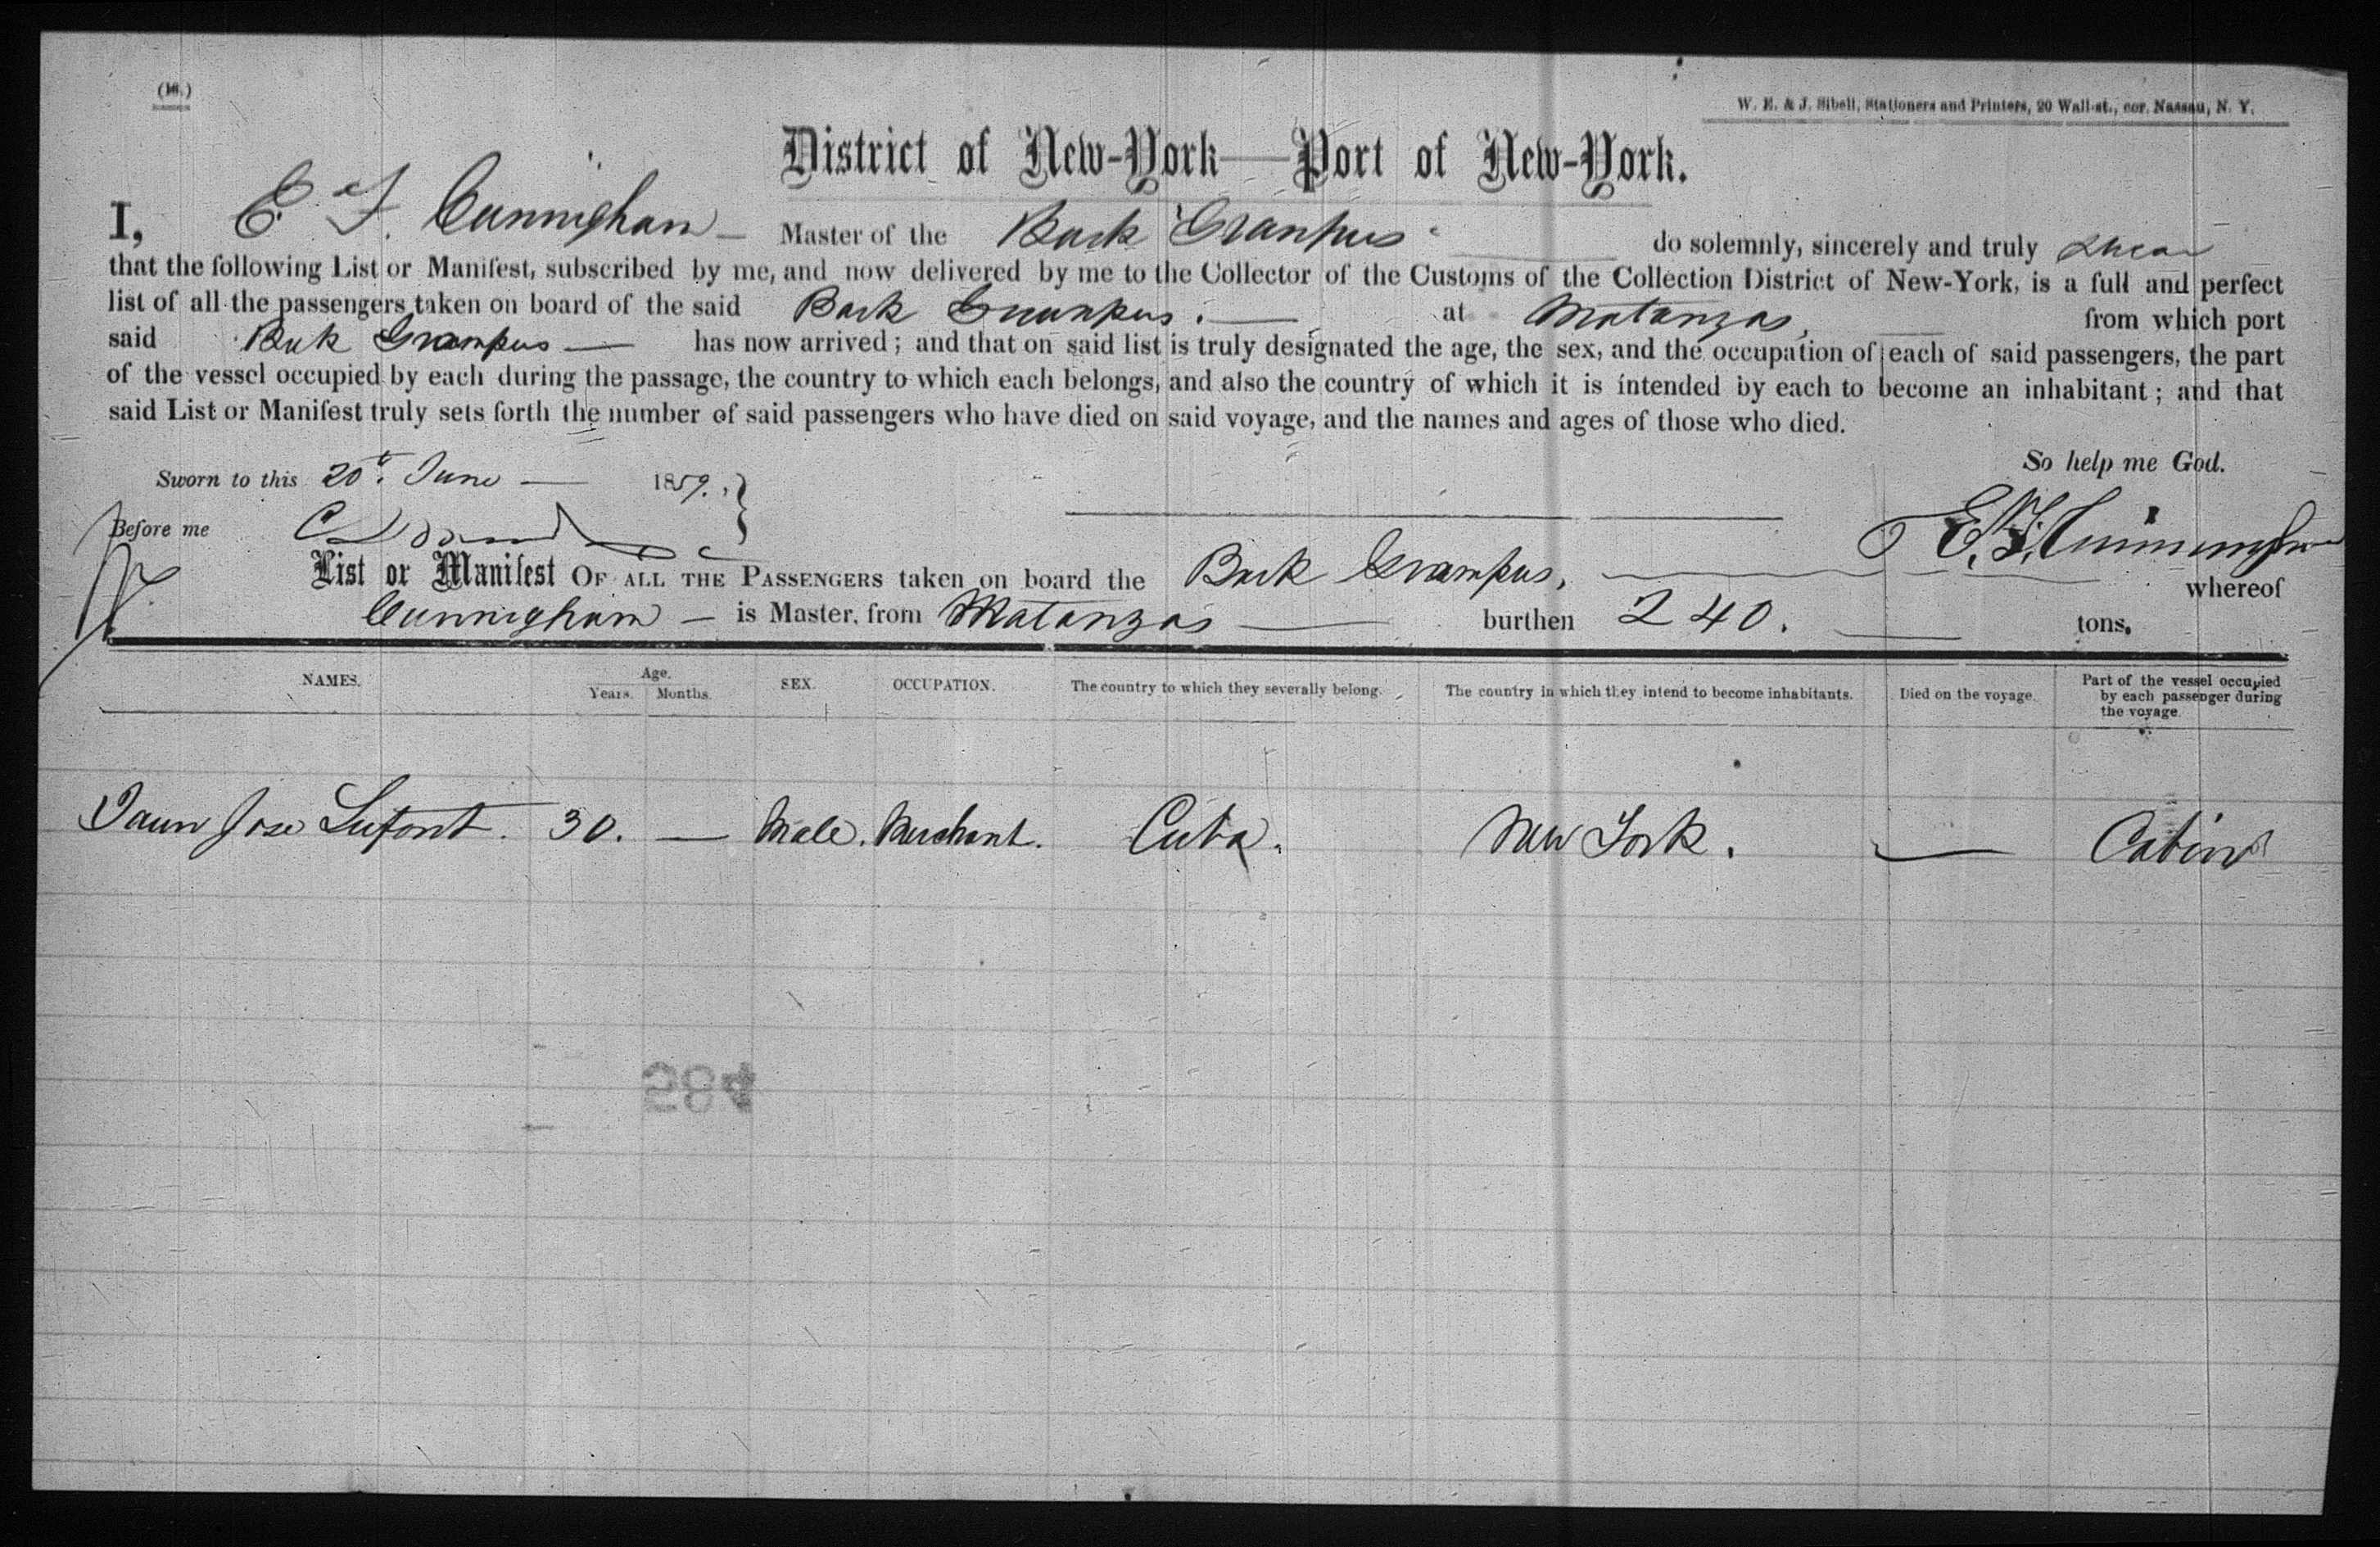 (16.)
W. E. & J. Sibell, Stationers and Printers, 20 Wall-st., cor. Nassau, N. Y.
District of New-York—Port of New-York.
I, E. F. Cunnigham — Master of the Bark Grampus do solemnly, sincerely and truly swear
that the following List or Manifest, subscribed by me, and now delivered by me to the Collector of the Customs of the Collection District of New-York, is a full and perfect
list of all the passengers taken on board of the said Bark Grampus. — at Matanzas, from which port
said Bark Grampus — has now arrived; and that on said list is truly designated the age, the sex, and the occupation of each of said passengers, the part
of the vessel occupied by each during the passage, the country to which each belongs, and also the country of which it is intended by each to become an inhabitant; and that
said List or Manifest truly sets forth the number of said passengers who have died on said voyage, and the names and ages of those who died.
So help me God.
Sworn to this 20t. June — 1859.
Before me
E. F. Cunningham
List or Manifest OF ALL THE PASSENGERS taken on board the Bark Grampus, — whereof
Cunnigham — is Master, from Matanzas — burthen 240. — tons.
NAMES. Age. Years. Months. SEX. OCCUPATION. The country to which they severally belong. The country in which they intend to become inhabitants. Died on the voyage. Part of the vessel occupied by each passenger during the voyage.
Jaun Jose Lufont. 30. — Male. Merchant. Cuba. New York. — Cabin
584